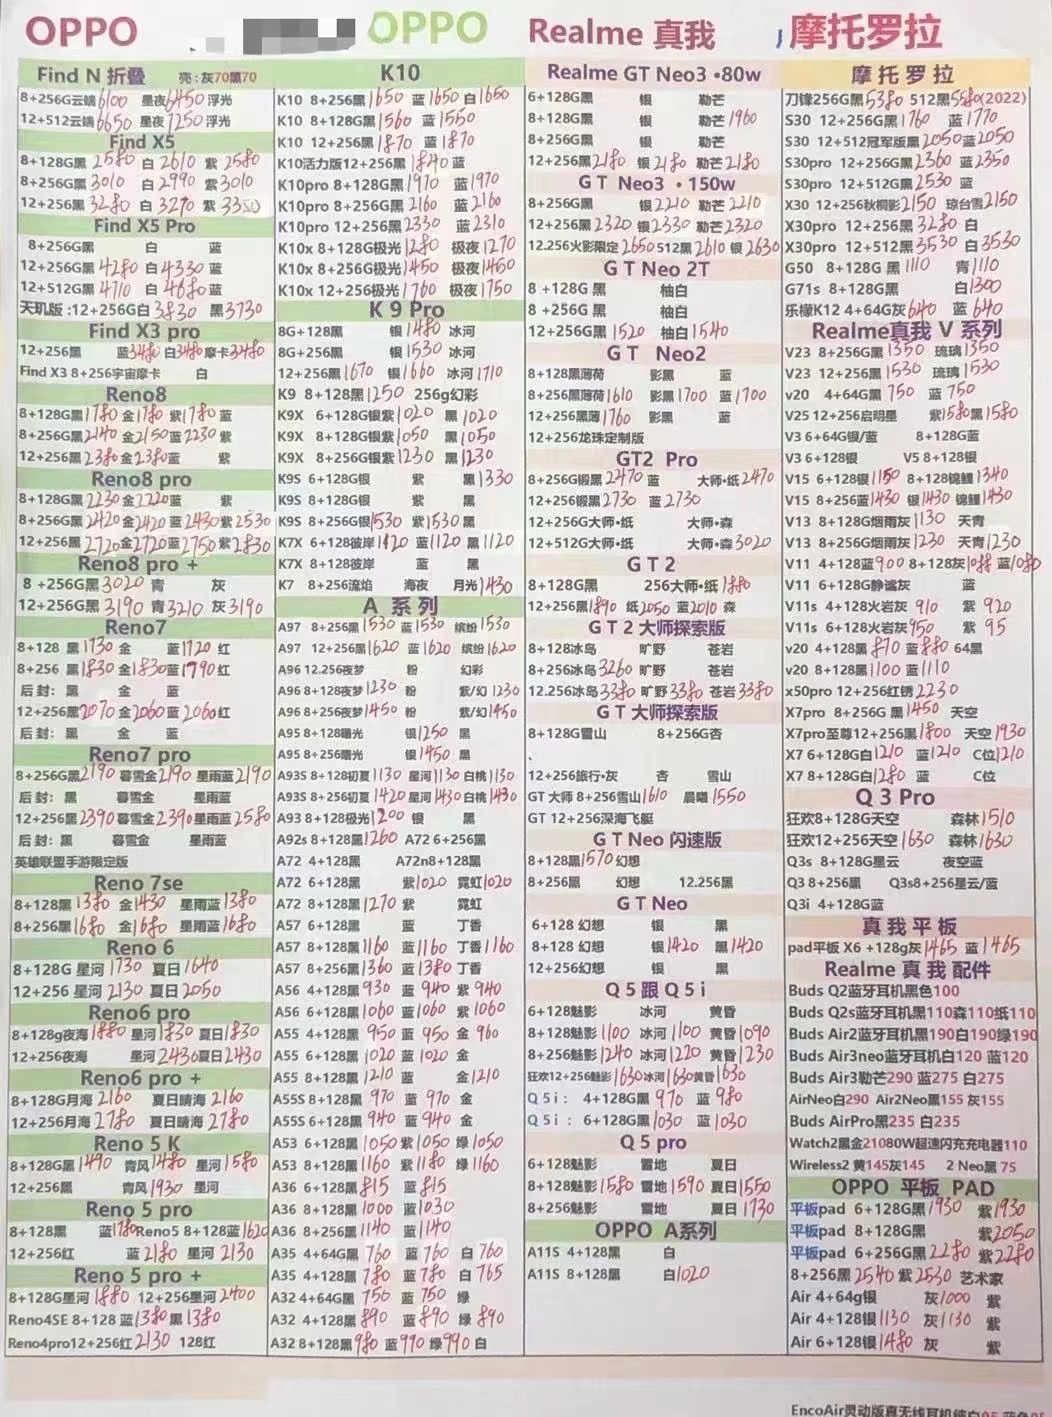 OPPO
Find N 折叠 亮:灰70黑70
8+256G云端6100 星夜6450浮光
12+512云端6650 星夜7250浮光
Find X5
8+128G黑2580 白2610 紫2580
8+256G黑3010 白2990 紫3010
12+256黑3280 白3270 紫3350
Find X5 Pro
8+256G黑 白 蓝
12+256G黑4280 白4330蓝
12+512G黑4710 白4680蓝
天玑版:12+256G白3830 黑3730
Find X3 pro
12+256黑 蓝3480白3480摩卡3480
Find X3 8+256宇宙摩卡 白
Reno8
8+128G黑1780金1780紫1780蓝
8+256G黑2140金2150蓝2230紫
12+256黑2380金2380蓝 紫
Reno8 pro
8+128G黑2230金2220蓝 紫
8+256G黑2420金2420蓝2430紫2530
12+256黑2720金2720蓝2750紫2830
Reno8 pro +
8 +256G黑3020青 灰
12+256G黑3190青3210灰3190
Reno7
8+128 黑1730金 蓝1720红
8+256 黑1830金1830蓝1790红
后封: 黑 金 蓝
12+256黑2070金2060蓝2060红
后封: 黑 金 蓝
Reno7 pro
8+256G黑2190暮雪金2190星雨蓝2190
后封: 黑 暮雪金 星雨蓝
12+256黑2390暮雪金2390星雨蓝2580
后封: 黑 暮雪金 星雨蓝
英雄联盟手游限定版
Reno 7se
8+128黑1380金1430 星雨蓝1380
8+256黑1680金1680 星雨蓝1680
Reno 6
8+128G 星河1730 夏日1640
12+256 星河2130夏日2050
Reno6 pro
8+128g夜海1880星河1830夏日1830
12+256夜海 星河2430夏日2430
Reno6 pro +
8+128G月海2160 夏日晴海2160
12+256月海2780 夏日晴海2780
Reno 5 K
8+128G黑1490 青风1480 星河1580
12+256黑 青风1930 星河
Reno 5 pro
8+128黑 蓝1780Reno5 8+128蓝1620
12+256红 蓝2180 星河2130
Reno 5 pro +
8+128G星河1880 12+256星河2400
Reno4SE 8+128 蓝1380黑1380
Reno4pro12+256红2130 128红
OPPO
K10
K10 8+256黑1650 蓝1650白1650
K10 8+128G黑1560 蓝1550
K10 12+256黑1870 蓝1870
K10活力版12+256黑1840蓝
K10pro 8+128G黑1970 蓝1970
K10pro 8+256G黑2160 蓝2160
K10pro 12+256黑2330 蓝2310
K10x 8+128G极光1280 极夜1270
K10x 8+256G极光1450 极夜1460
K10x 12+256极光1760 极夜1750
K 9 Pro
8G+128黑 银1480冰河
8G+256黑 银1530冰河
12+256黑1670 银1660冰河1710
K9 8+128黑1250 256g幻彩
K9X 6+128G银紫1020 黑1020
K9X 8+128G银紫1050 黑1050
K9X 8+256G银紫1230 黑1230
K9S 6+128G银 紫 黑1330
K9S 8+128G银 紫 黑
K9S 8+256G银1530紫1530黑
K7X 6+128彼岸1120蓝1120黑1120
K7X 8+128彼岸 蓝 黑
K7 8+256流焰 海夜 月光1430
A 系列
A97 8+256黑1530蓝1530缤纷1530
A97 12+256黑1620蓝1620缤纷1620
A96 12.256夜梦 粉 幻彩
A96 8+128夜梦1230粉 紫/幻1230
A96 8+256夜梦1450粉 紫/幻1450
A95 8+128曙光 银1250黑
A95 8+256曙光 银1450黑
A93S 8+128初夏1130星河1130白桃1130
A93S 8+256初夏1420星河1430白桃1430
A93 8+128极光1200银 黑
A92s 8+128黑1260 A72 6+256黑
A72 4+128黑 A72n8+128黑
A72 6+128黑 紫1020 霓虹1020
A72 8+128黑1270紫 霓虹
A57 6+128黑 蓝 丁香
A57 8+128黑1160蓝1160丁香1160
A57 8+256黑1360蓝1380丁香
A56 4+128黑930蓝940紫940
A56 6+128黑1060蓝1060紫1060
A55 4+128黑950蓝950金960
A55 6+128黑1020蓝1020金
A55 8+128黑1210蓝 金1210
A55S 8+128黑970蓝970金
A55S 6+128黑940蓝940金
A53 6+128黑1050紫1050绿1050
A53 8+128黑1160紫1180绿1160
A36 6+128黑815蓝815
A36 8+128黑1000蓝1030
A36 8+256黑1140蓝1140
A35 4+64G黑760蓝760白760
A35 4+128黑780蓝780白765
A32 4+64G黑750蓝750绿
A32 4+128黑890蓝890绿890
A32 8+128黑980蓝990绿990白
Realme 真我
Realme GT Neo3 •80w
6+128G黑 银 勒芒
8+128G黑 银 勒芒1960
8+256G黑 银 勒芒
12+256黑2180银2180勒芒2180
G T Neo3 • 150w
8+256G黑 银2210勒芒2210
12+256黑2320银2330勒芒2320
12.256火影限定2650 512黑2610银2630
G T Neo 2T
8 +128G 黑 柚白
8 +256G 黑 柚白
12+256G黑1520柚白1540
G T Neo2
8+128黑薄荷 影黑 蓝
8+256黑薄荷1610影黑1700蓝1700
12+256黑薄1760影黑 蓝
12+256龙珠定制版
GT2 Pro
8+256G缎黑2470蓝 大师•纸2470
12+256缎黑2730蓝2730
12+256G大师•纸 大师•森
12+512G大师•纸 大师•森3020
G T 2
8+128G黑 256大师•纸1880
12+256黑1890纸2050蓝2010森
G T 2 大师探索版
8+128冰岛 旷野 苍岩
8+256冰岛3260旷野 苍岩
12.256冰岛3380旷野3380苍岩3380
G T 大师探索版
8+128G雪山 8+256G杏
、
12+256旅行•灰 杏 雪山
GT 大师 8+256雪山1610 晨曦1550
GT 12+256深海飞艇
G T Neo 闪速版
8+128黑1570幻想
8+256黑 幻想 12.256黑
G T Neo
6+128 幻想 银 黑
8+128 幻想 银1420黑1420
12+256幻想 银 黑
Q 5 跟 Q 5 i
6+128魅影 冰河 黄昏
8+128魅影1100冰河1100黄昏1090
8+256魅影1240冰河1220黄昏1230
狂欢12+256魅影1630冰河1630黄昏1630
Q 5i : 4+128G黑970蓝980
Q 5i : 6+128G黑1030蓝1030
Q 5 pro
6+128魅影 雪地 夏日
8+128魅影1580雪地1590夏日1550
8+256魅影 雪地 夏日1730
OPPO A系列
A11S 4+128黑 白
A11S 8+128黑 白1020
摩托罗拉
摩 托 罗 拉
刀锋256G黑5380 512黑5580(2022)
S30 12+256G黑1760 蓝1770
S30 12+512冠军版黑2050蓝2050
S30pro 12+256G黑2360 蓝2350
S30pro 12+512G黑2530 蓝
X30 12+256秋桐影2150琼台雪2150
X30pro 12+256黑3280白
X30pro 12+512黑3530白3530
G50 8+128G 黑1110 青1110
G71s 8+128G黑 白1300
乐檬K12 4+64G灰640 蓝640
Realme真我 V 系列
V23 8+256G黑1350琉璃1350
V23 12+256黑1530琉璃1530
v20 4+64G黑750蓝750
V25 12+256启明星 紫1580黑1580
V3 6+64G银/蓝 8+128G蓝
V3 6+128银 V5 8+128银
V15 6+128银1150 8+128锦鲤1340
V15 8+256蓝1430银1430锦鲤1430
V13 8+128G烟雨灰1130天青
V13 8+256G烟雨灰1230天青1230
V11 4+128蓝900 8+128灰1088蓝1080
V11 6+128G静谧灰 蓝
V11s 4+128火岩灰910 紫920
V11s 6+128火岩灰950 紫95
v20 4+128黑870蓝880 64黑
v20 8+128黑1100蓝1110
x50pro 12+256红锈2230
X7pro 8+256G 黑1450天空
X7pro至尊12+256黑1800天空1930
X7 6+128G白1210蓝1210C位1210
X7 8+128G白1280蓝 C位
Q 3 Pro
狂欢8+128G天空 森林1510
狂欢12+256天空1630森林1630
Q3s 8+128G星云 夜空蓝
Q3 8+256黑 Q3s8+256星云/蓝
Q3i 4+128G蓝
真 我 平 板
pad平板 X6 +128g灰1465蓝1465
Realme 真 我 配件
Buds Q2蓝牙耳机黑色100
Buds Q2s蓝牙耳机黑110森110纸110
Buds Air2蓝牙耳机黑190白190绿190
Buds Air3neo蓝牙耳机白120 蓝120
Buds Air3勒芒290 蓝275 白275
AirNeo白290 Air2Neo黑155 灰155
Buds AirPro黑235 白235
Watch2黑金21080W超速闪充充电器110
Wireless2 黄145灰145 2 Neo黑 75
OPPO 平板 PAD
平板pad 6+128G黑1930 紫1930
平板pad 8+128G黑 紫2050
平板pad 6+256G黑2280紫2280
8+256黑2540紫2530艺术家
Air 4+64g银 灰1000紫
Air 4+128银1130灰1130紫
Air 6+128银1480灰 紫
EncoAir灵动版真无线耳机纯白95